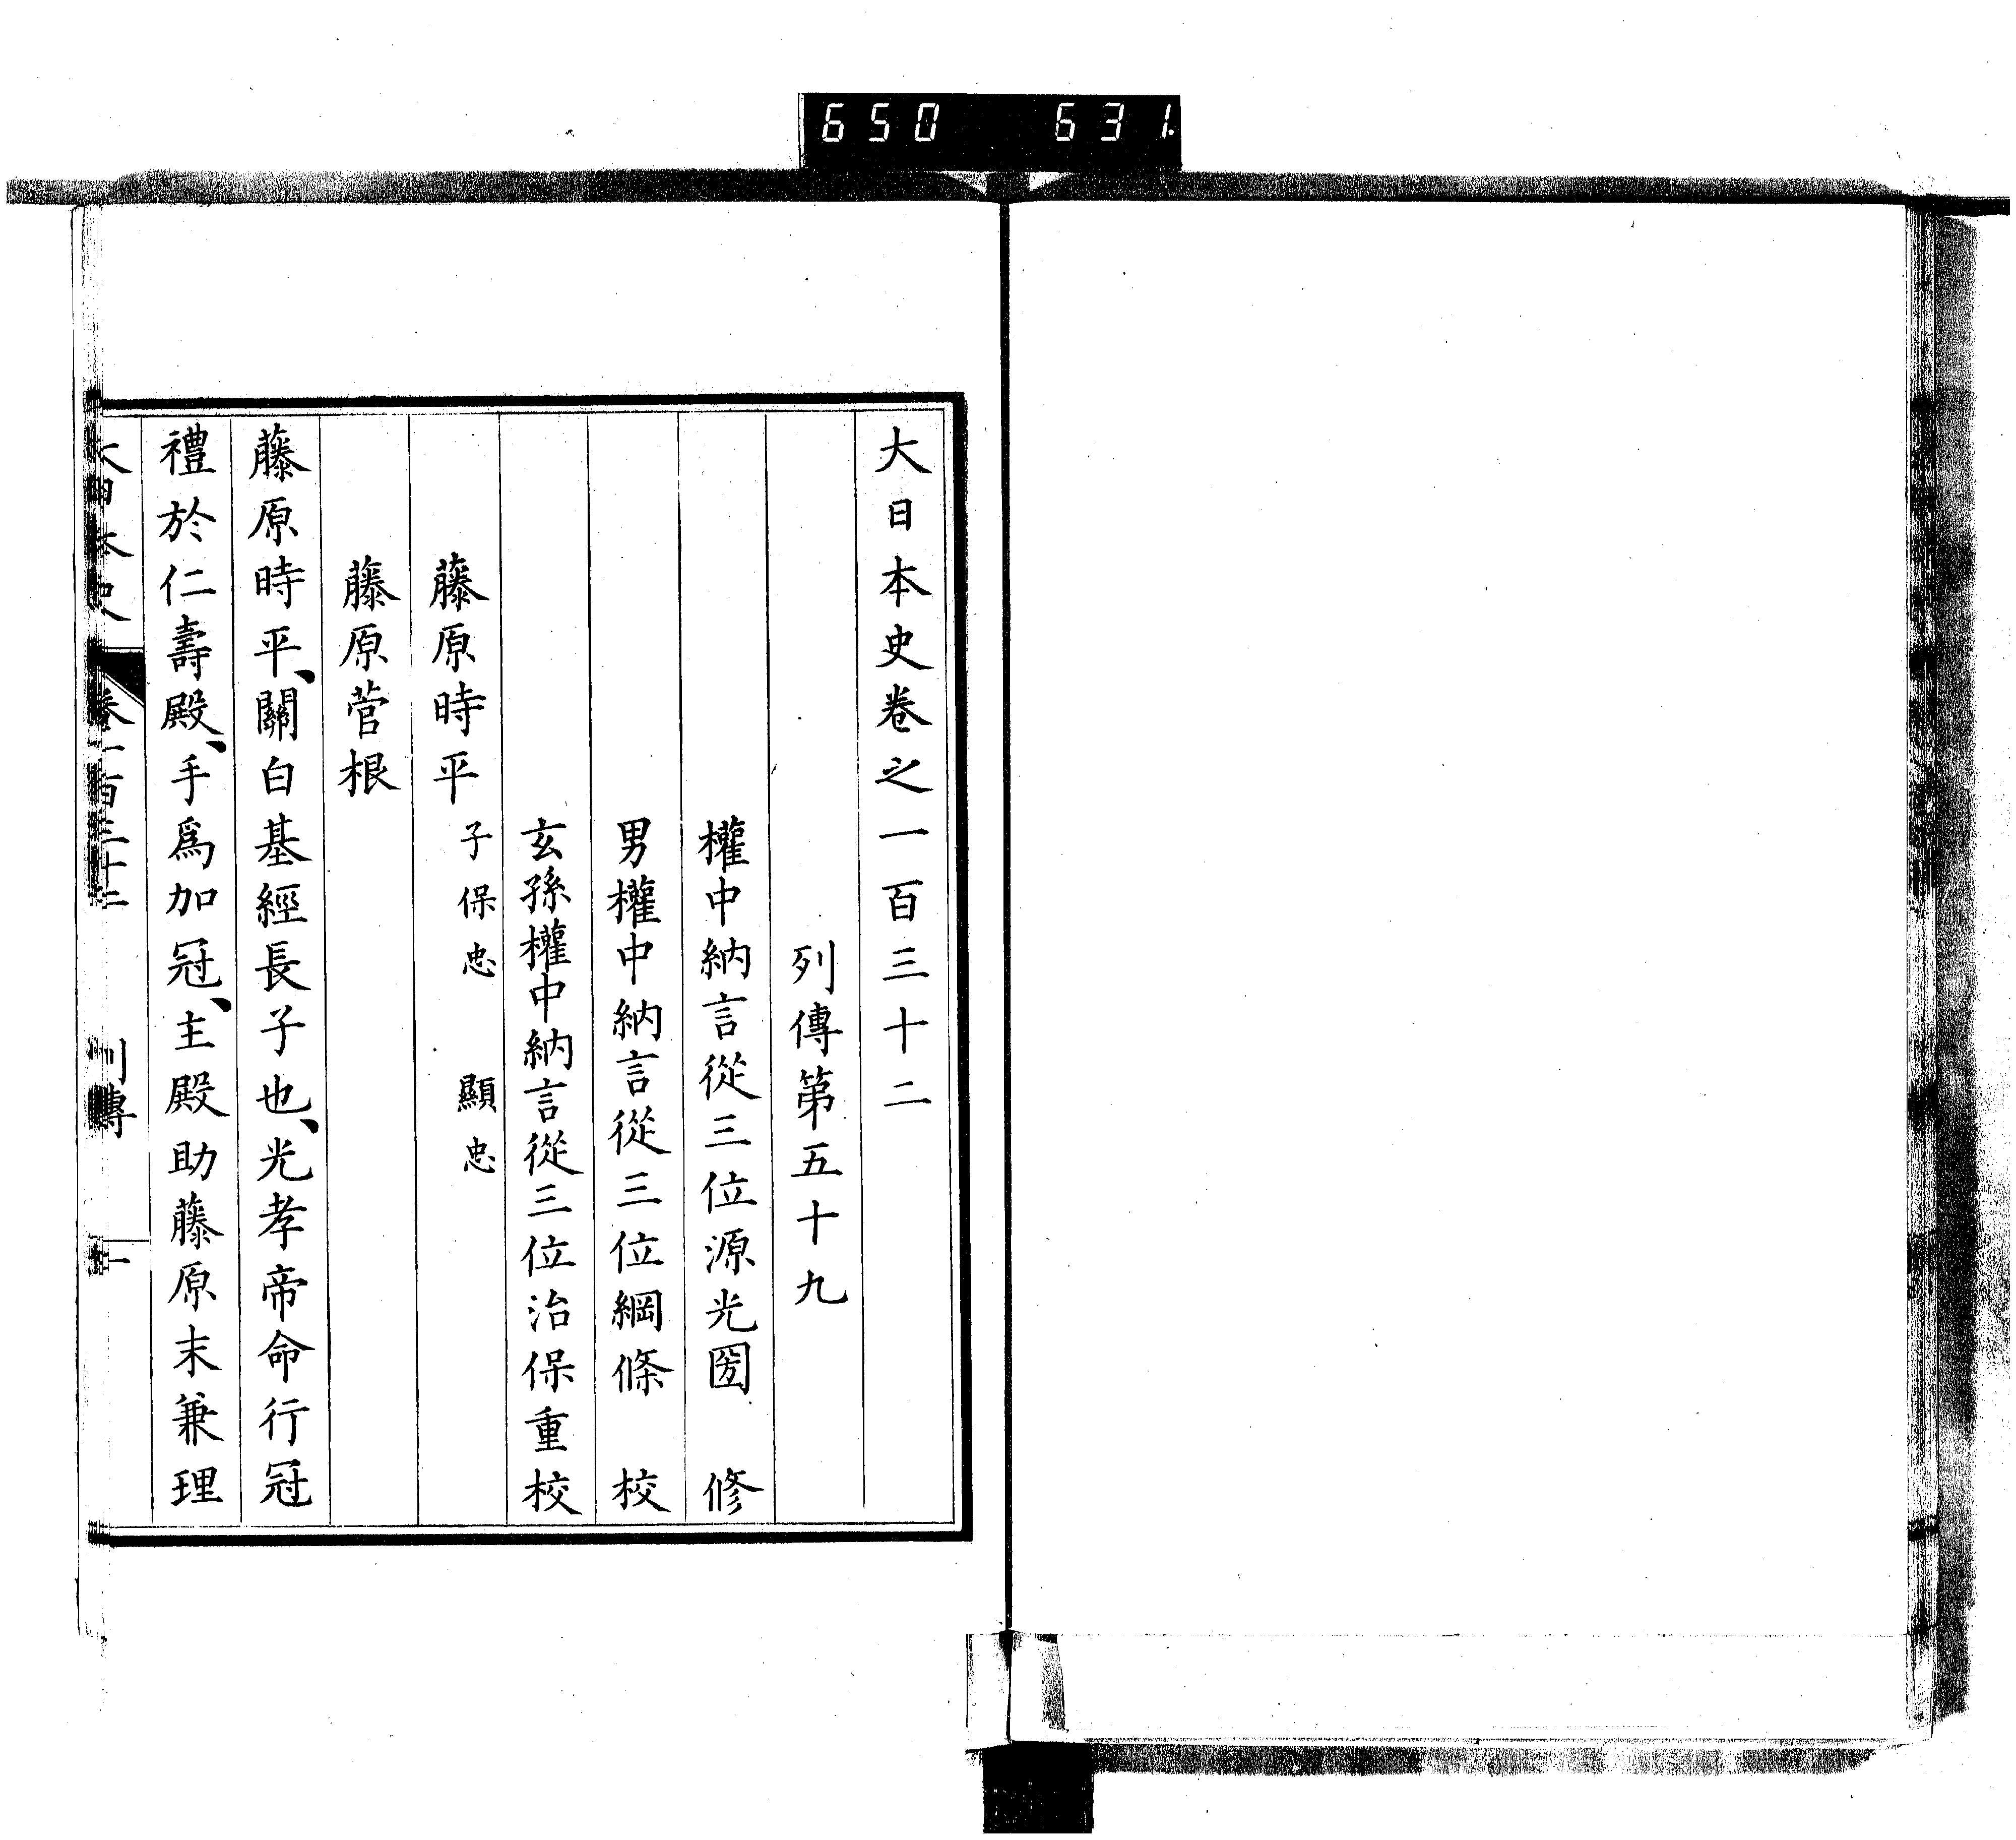 650 631
大日本史卷之一百三十二
列傳第五十九
權中納言從三位源光圀 修
男權中納言從三位綱條 校
玄孫權中納言從三位治保重校
藤原時平 子保忠 顯忠
藤原菅根
藤原時平、關白基經長子也、光孝帝命行冠
禮於仁壽殿、手爲加冠、主殿助藤原末兼理
大日本史 卷一百三十二 列傳 一